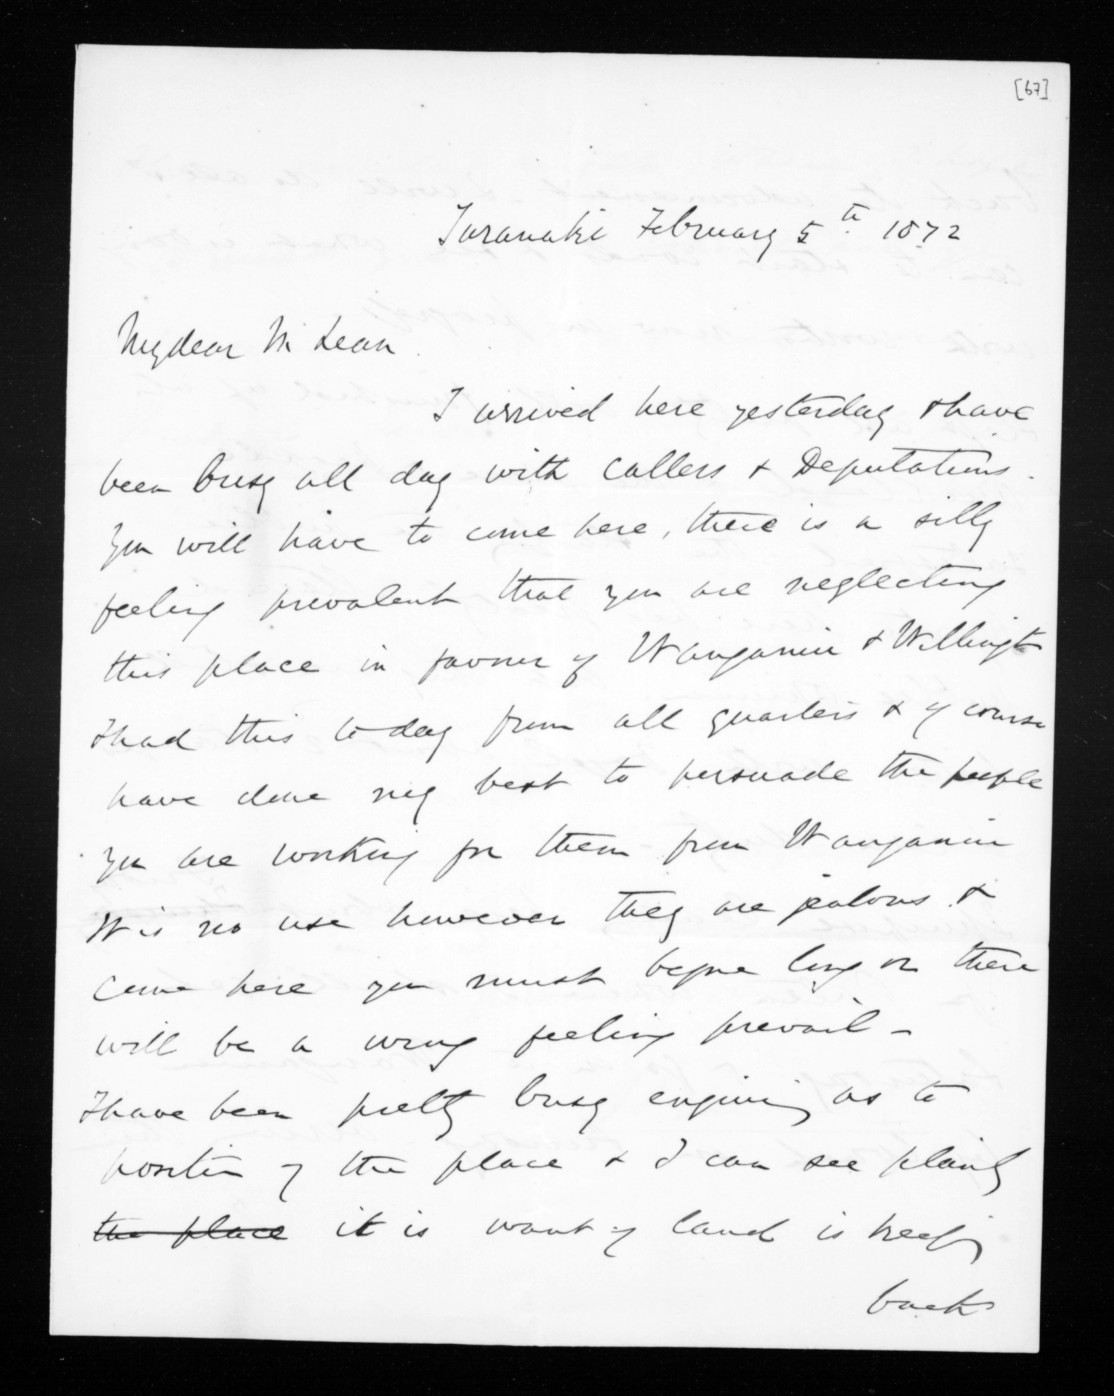 [67]
Taranaki February 5th 1872
My dear McLean
I arrived here yesterday & have
been busy all day with callers & Deputations.
You will have to come here, there is a silly
feeling prevalent that you are neglecting
this place in favour of Wanganui & Wellingto
I had this to day from all quarters & of course
have done my best to persuade the people
you are working for them from Wanganui
It is no use however they are jealous &
come here you must before long or there
will be a wrong feeling prevail -
I have been pretty busy enquiring as to
position of the place & I can see plainly
the place it is want of land is keeping
back